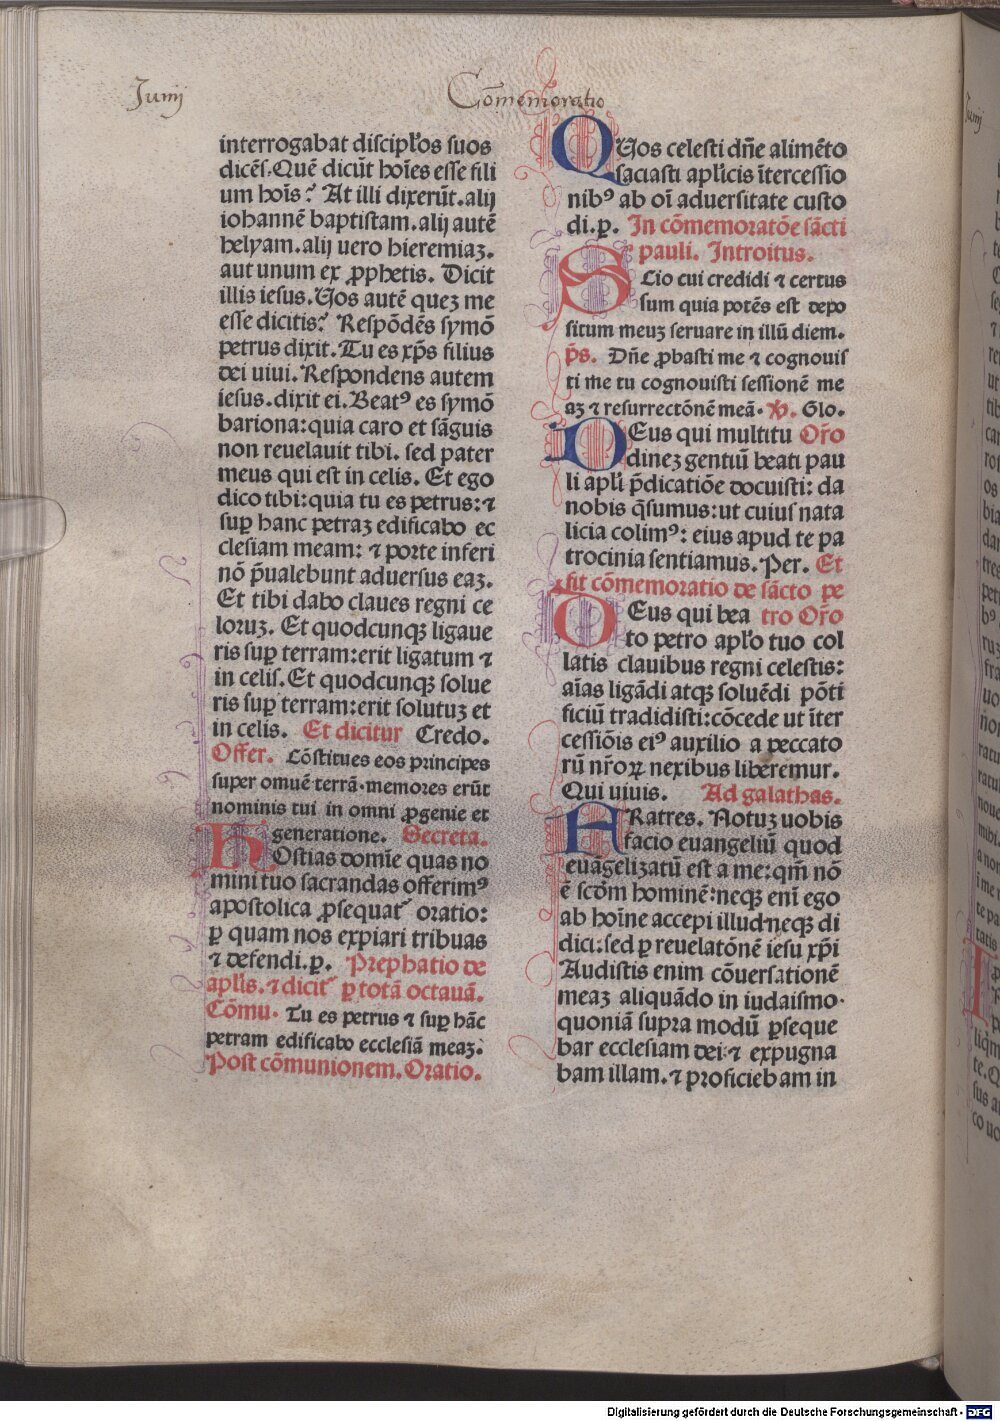 Junij
Cōmemoratio
interrogabat discipl'os suos
dicēs. Quē dicūt hoīes esse fili
um hoīs? At illi dixerūt. alij
iohannē baptistam. alij autē
helyam. alij uero hieremiaꝫ.
aut unum ex ꝓphetis. Dicit
illis iesus. Uos autē queꝫ me
esse dicitis? Respōdēs symō
petrus dixit. Tu es xp̄s filius
dei uiui. Respondens autem
iesus. dixit ei. Beatꝰ es symō
bariona: quia caro et sāguis
non reuelauit tibi. sed pater
meus qui est in celis. Et ego
dico tibi: quia tu es petrus: ⁊
suꝑ hanc petraꝫ edificabo ec
clesiam meam: ⁊ porte inferi
nō p̄ualebunt aduersus eaꝫ.
Et tibi dabo claues regni ce
loruꝫ. Et quodcunqꝫ ligaue
ris suꝑ terram: erit ligatum ⁊
in celis. Et quodcunqꝫ solue
ris suꝑ terram: erit solutuꝫ et
in celis. Et dicitur Credo.
Offer. Cōstitues eos principes
super omnē terrā. memores erūt
nominis tui in omni ꝓgenie et
generatione. Secreta.
HOstias domīe quas no
mini tuo sacrandas offerimꝰ
apostolica ꝓsequat᷑ oratio:
ꝑ quam nos expiari tribuas
⁊ defendi. ꝑ. Prephatio de
apl'is. ⁊ dicit᷑ ꝑ totā octauā.
Cōmu. Tu es petrus ⁊ suꝑ hāc
petram edificabo ecclesiā meaꝫ.
Post cōmunionem. Oratio.
QUos celesti dn̄e alimēto
saciasti apl'icis ītercessio
nibꝰ ab oī aduersitate custo
di. ꝑ. In cōmemoratōe sācti
pauli. Introitus.
SCio cui credidi ⁊ certus
sum quia potēs est depo
situm meuꝫ seruare in illū diem.
p̄s. Dn̄e ꝓbasti me ⁊ cognouis
ti me tu cognouisti sessionē me
aꝫ ⁊ resurrectōnē meā. ℣. Glo.
DEus qui multitu Or̄o
dineꝫ gentiū beati pau
li apl'i p̄dicatiōe docuisti: da
nobis q̄sumus: ut cuius nata
licia colimꝰ: eius apud te pa
trocinia sentiamus. Per. Et
fit cōmemoratio de sācto pe
DEus qui bea tro Or̄o
to petro apl'o tuo col
latis clauibus regni celestis:
aīas ligādi atqꝫ soluēdi pōti
ficiū tradidisti: cōcede ut īter
cessiōis eiꝰ auxilio a peccato
rū nr̄oꝝ nexibus liberemur.
Qui uiuis. Ad galathas.
FRatres. Notuꝫ uobis
facio euangeliū quod
euāgelizatū est a me: qm̄ nō
ē scd̄m hominē: neqꝫ enī ego
ab hoīne accepi illud. neqꝫ di
dici: sed ꝑ reuelatōnē iesu xp̄i
Audistis enim cōuersationē
meaꝫ aliquādo in iudaismo.
quoniā supra modū ꝑseque
bar ecclesiam dei: ⁊ expugna
bam illam. ⁊ proficiebam in
Digitalisierung gefördert durch die Deutsche Forschungsgemeinschaft - DFG